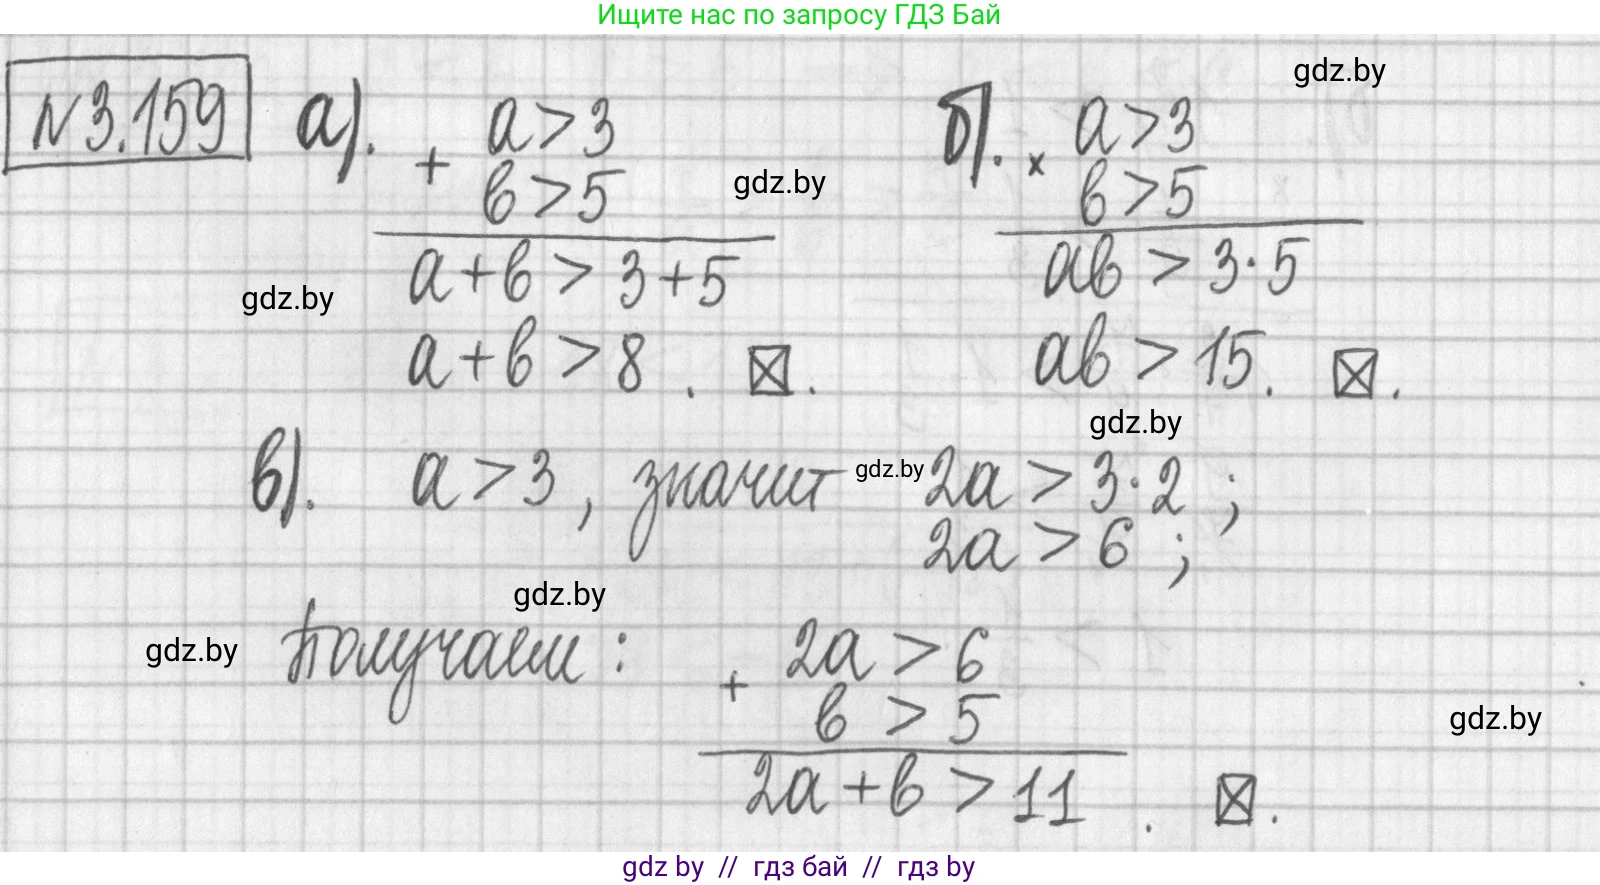 Ищите нас по запросу ГДЗ Бай
gdz.by
№3.159 а). a > 3 б). × a > 3
+ b > 5 gdz.by b > 5
a + b > 3 + 5 ab > 3 · 5
gdz.by
a + b > 8 . ☒. ab > 15. ☒.
gdz.by
в). a > 3 , значит gdz.by 2a > 3 · 2 ;
2a > 6 ;
gdz.by
gdz.by Получаем : + 2a > 6
b > 5 gdz.by
2a + b > 11 . ☒.
gdz by // гдз бай // гдз by